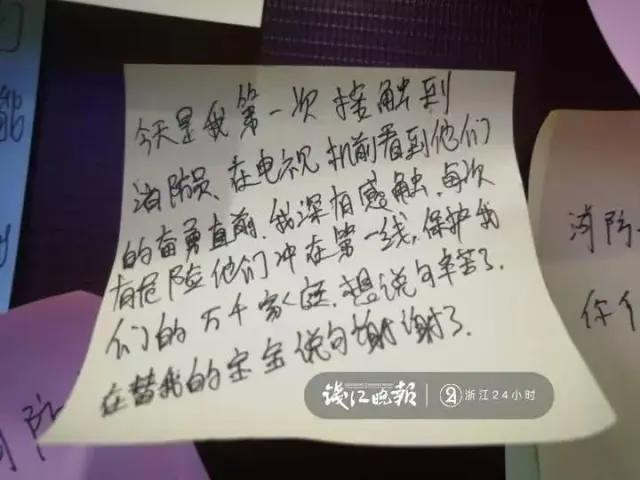 今天是我第一次接触到
消防员、在电视机前看到他们
的奋勇直前、我深有感触、每次
有危险他们冲在第一线,保护我
们的万千家庭、想说句辛苦了、
在替我的宝宝说句谢谢了、
消防
你们
消防
钱江晚报
浙江24小时